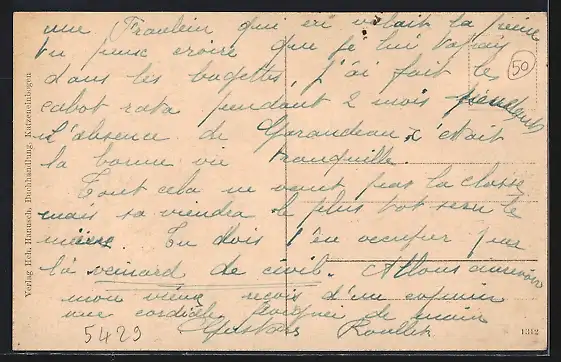 une Fraulein qui en valait la peine
tu peux croire que je lui tapais
dans les baguettes, j'ai fait le
cabot rata pendant 2 mois pendant
l'absence de Garandeau, c'était
la bonne vie tranquille.
Tout cela ne vaut pas la classe
mais ça viendra le plus tot sera le
mieux. Tu dois t'en occuper par
là veinard de civil. Allons aurevoir
mon vieux reçois d'un copain
une cordiale poignée de main
Gustave
5429
50
Verlag Hch. Harusch, Buchhandlung, Katzenelnbogen
1312